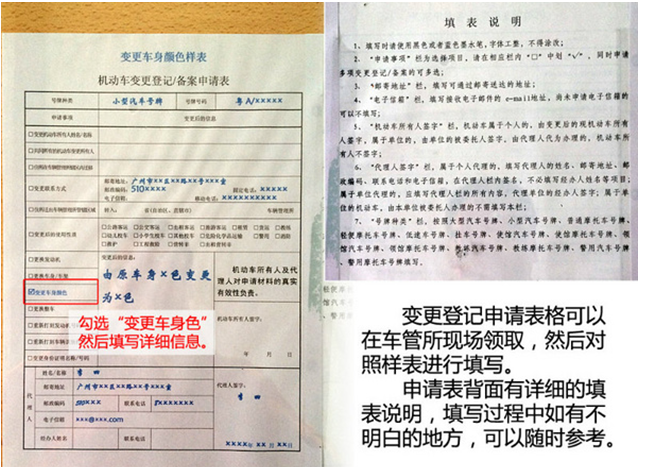 变更车身颜色样表
机动车变更登记/备案申请表
号牌种类 小型汽车号牌 号牌号码 粤A/×××××
申请事项 变更后的信息
□变更机动车所有人姓名/名称
□共同所有的机动车变更所有人
□变更联系方式
邮寄地址：广州市××区××路××号×××室
邮政编码：510××× 固定电话：×××××
电子信箱： 移动电话：×××××××××××
□变更后的使用性质
□公路客运 □公交客运 □出租客运 □旅游客运 □租赁 □货运 □教练
□幼儿校车 □小学生校车 □其他校车 □危险化学品运输 □警用 □消防
□救护 □工程救险 □营转非 □出租营转非
□更换发动机
□更换车身/车架
☑变更车身颜色
□更换整车
变更后的信息：
由原车身×色变更
为×色
机动车所有人及代
理人对申请材料的真实
有效性负责。
机动车所有人签字：
年 月 日
勾选“变更车身色”
然后填写详细信息。
□变更身份证明名称/号码
代理人
姓名/名称 李四
邮寄地址 广州市××区××路××号×××室
邮政编码 联系电话
电子信箱 xxx@xxx.com
经办人姓名 联系电话
代理人签字：
李四
××××年 ××月 ××日
填 表 说 明
1、填写时请使用黑色或者蓝色墨水笔，字体工整，不得涂改；
2、“申请事项”栏为选择项目，请在相应栏内“□”中划“√”，同时申请
多项变更登记/备案的可多选；
3、“邮寄地址”栏，填写可通过邮寄送达的地址；
4、“电子信箱”栏，填写接收电子邮件的e-mail地址，尚未申请电子信箱的
可以不填写；
5、“机动车所有人签字”栏，机动车属于个人的，由变更后的现机动车所有
人签字，属于单位的，由单位的被委托人签字，由代理人代为办理的，机动车所
有人不签字；
6、“代理人签字”栏，属于个人代理的，填写代理人的姓名、邮寄地址、邮
政编码、联系电话和电子信箱，在代理人栏内签名，不必填写经办人姓名等项目；
属于单位代理的，应填写代理人栏的所有内容，代理单位的经办人签字；属于单
位的机动车，由本单位被委托人办理的不需填写本栏；
7、“号牌种类”栏，按照大型汽车号牌、小型汽车号牌、普通摩托车号牌、
轻便摩托车号牌、低速车号牌、挂车号牌、使馆汽车号牌、使馆摩托车号牌、领
馆汽车号牌、领馆摩托车号牌、教练汽车号牌、教练摩托车号牌、警用汽车号
牌、警用摩托车号牌填写。
变更登记申请表格可以
在车管所现场领取，然后对
照样表进行填写。
申请表背面有详细的填
表说明，填写过程中如有不
明白的地方，可以随时参考。